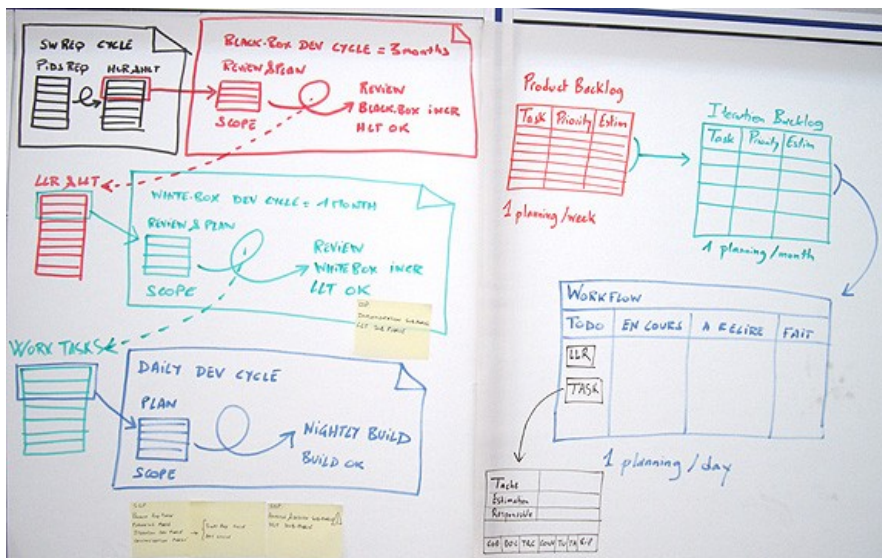 SW REQ CYCLE
PIDS REQ
HLR & HLT
BLACK-BOX DEV CYCLE = 3 months
REVIEW & PLAN
SCOPE
REVIEW
BLACK-BOX INCR
HLT OK
LLR & LLT
WHITE-BOX DEV CYCLE = 1 MONTH
REVIEW & PLAN
SCOPE
REVIEW
WHITEBOX INCR
LLT OK
WORK TASKS
DAILY DEV CYCLE
PLAN
SCOPE
NIGHTLY BUILD
BUILD OK
Product Backlog
Task Priority Estim
1 planning/week
Iteration Backlog
Task Priority Estim
1 planning/month
WORKFLOW
TODO EN COURS A RELIRE FAIT
LLR
TASK
1 planning/day
Tache
Estimation
Responsable
COD DOC TRC